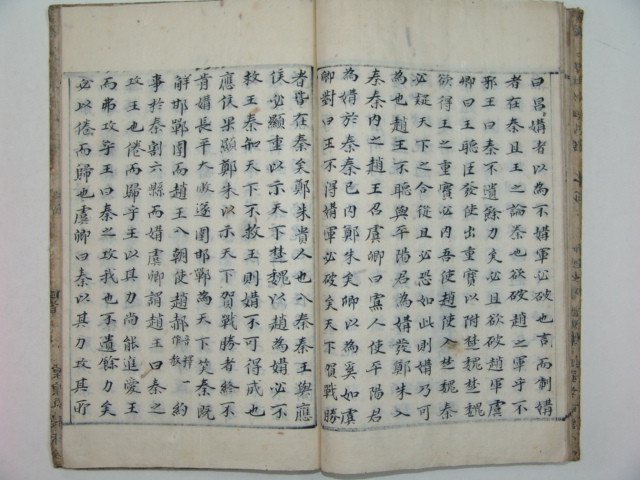 曰昌媾者以為不媾軍必破也言而制媾
者在秦且王之論秦也欲破趙之軍乎不
邪王曰秦不遺餘力矣必且欲破趙軍虞
卿曰王聽臣發使出重寶以附楚魏楚魏
欲得王之重寶必內吾使趙使入楚魏秦
必疑天下之合從且必恐如此則媾乃可
為也趙王不聽與平陽君為媾發鄭朱入
秦秦內之趙王召虞卿曰寡人使平陽君
為媾於秦秦已內鄭朱矣卿以為奚如虞
卿對曰王不得媾軍必破矣天下賀戰勝
者皆在秦矣鄭朱貴人也入秦秦王與應
侯必顯重以示天下楚魏以趙為媾必不
救王秦知天下不救王則媾不可得成也
應侯果顯鄭朱以示天下賀戰勝者終不
肯媾長平大敗遂圍邯鄲為天下笑秦既
解邯鄲圍而趙王入朝使趙郝音釋一作赦約
事於秦割六縣而媾虞卿謂趙王曰秦之
攻王也倦而歸乎王以其力尚能進愛王
而弗攻乎王曰秦之攻我也不遺餘力矣
必以倦而歸也虞卿曰秦以其力攻其所